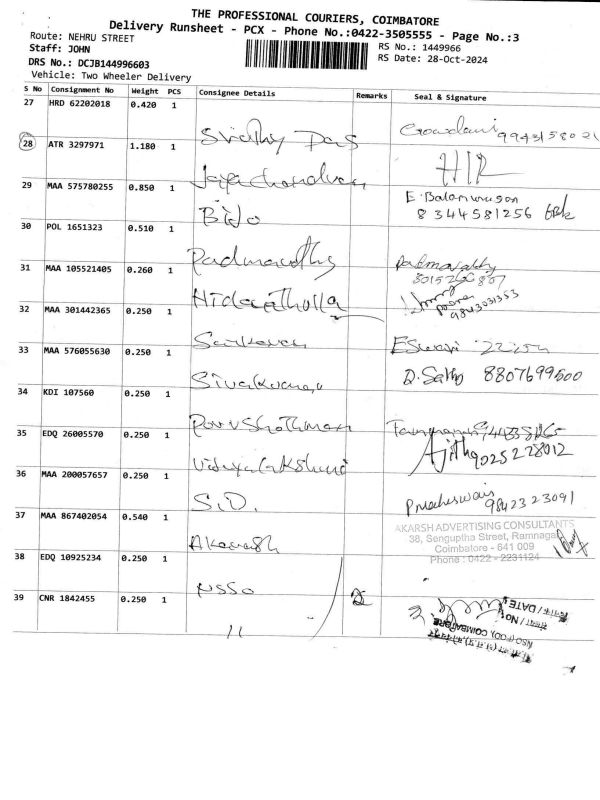 THE PROFESSIONAL COURIERS, COIMBATORE
Delivery Runsheet - PCX - Phone No.:0422-3505555 - Page No.:3
Route: NEHRU STREET
RS No.: 1449966
Staff: JOHN
RS Date: 28-Oct-2024
DRS No.: DCJB144996603
Vehicle: Two Wheeler Delivery
S No Consignment No Weight PCS Consignee Details Remarks Seal & Signature
27 HRD 62202018 0.420 1
9943158021
28 ATR 3297971 1.180 1
29 MAA 575780255 0.850 1
E. Balamurugan
8344581256
30 POL 1651323 0.510 1
Padmavathy
31 MAA 105521405 0.260 1 Hidayathulla
9843031353
32 MAA 301442365 0.250 1
Eswari
33 MAA 576055630 0.250 1
Sivakumar
D. Sathy 8807699500
34 KDI 107560 0.250 1
Purushothman
35 EDQ 26005570 0.250 1
Ajith 9025228012
36 MAA 200057657 0.250 1
S.D.
P maheswari
9842323091
37 MAA 867402054 0.540 1
Akarash
AKARSH ADVERTISING CONSULTANTS
38, Senguptha Street, Ramnagar
Coimbatore - 641 009
Phone : 0422 - 2231124
38 EDQ 10925234 0.250 1
NSSO
39 CNR 1842455 0.250 1
2
11
/ DATE
/ NO
NSO (FOD), COIMBATORE